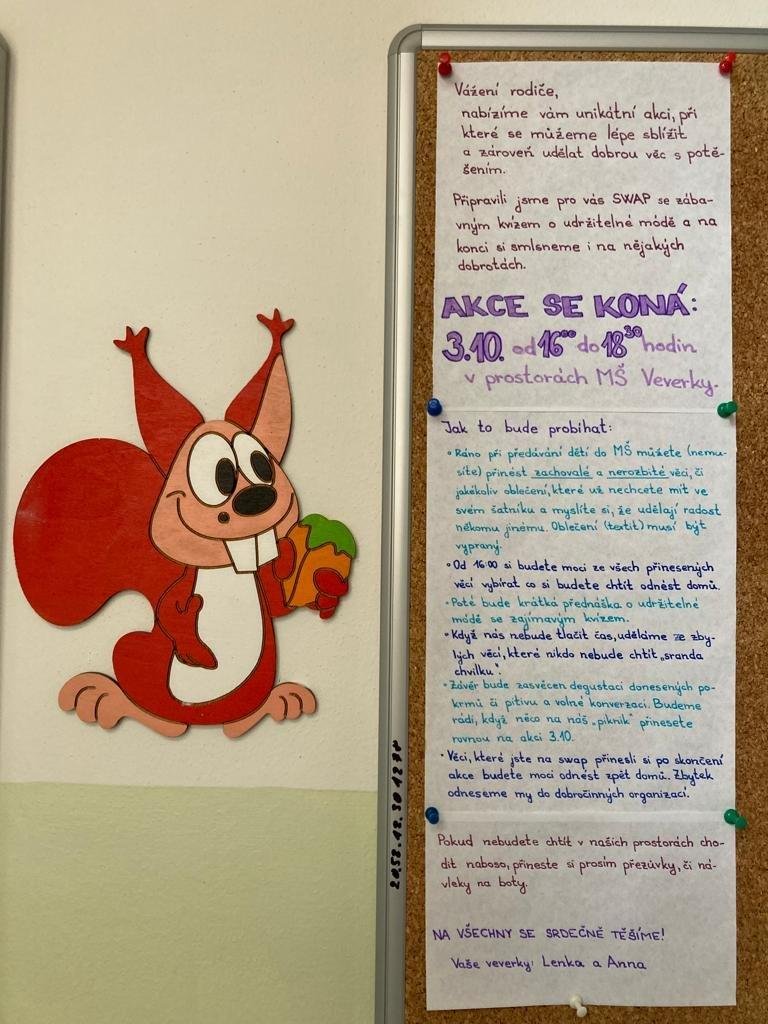 Vážení rodiče,
nabízíme vám unikátní akci, při
které se můžeme lépe sblížit
a zároveň udělat dobrou věc s potě-
šením.
Připravili jsme pro vás SWAP se zába-
vným kvízem o udržitelné módě a na
konci si smlsneme i na nějakých
dobrotách.
AKCE SE KONÁ:
3.10. od 16⁰⁰ do 18³⁰ hodin
v prostorách MŠ Veverky.
Jak to bude probíhat:
• Ráno při předávání dětí do MŠ můžete (nemu-
síte) přinést zachovalé a nerozbité věci, či
jakékoliv oblečení, které už nechcete mít ve
svém šatníku a myslíte si, že udělají radost
někomu jinému. Oblečení (textil) musí být
vypraný.
• Od 16:00 si budete moci ze všech přinesených
věcí vybírat co si budete chtít odnést domů.
• Poté bude krátká přednáška o udržitelné
módě se zajímavým kvízem.
• Když nás nebude tlačit čas, uděláme ze zby-
lých věcí, které nikdo nebude chtít „sranda
chvilku".
• Závěr bude zasvěcen degustaci donesených po-
krmů či pitivu a volné konverzaci. Budeme
rádi, když něco na náš „piknik" přinesete
rovnou na akci 3.10.
• Věci, které jste na swap přinesli si po skončení
akce budete moci odnést zpět domů. Zbytek
odneseme my do dobročinných organizací.
Pokud nebudete chtít v našich prostorách cho-
dit naboso, přineste si prosím přezůvky, či ná-
vleky na boty.
NA VŠECHNY SE SRDEČNĚ TĚŠÍME!
Vaše veverky: Lenka a Anna